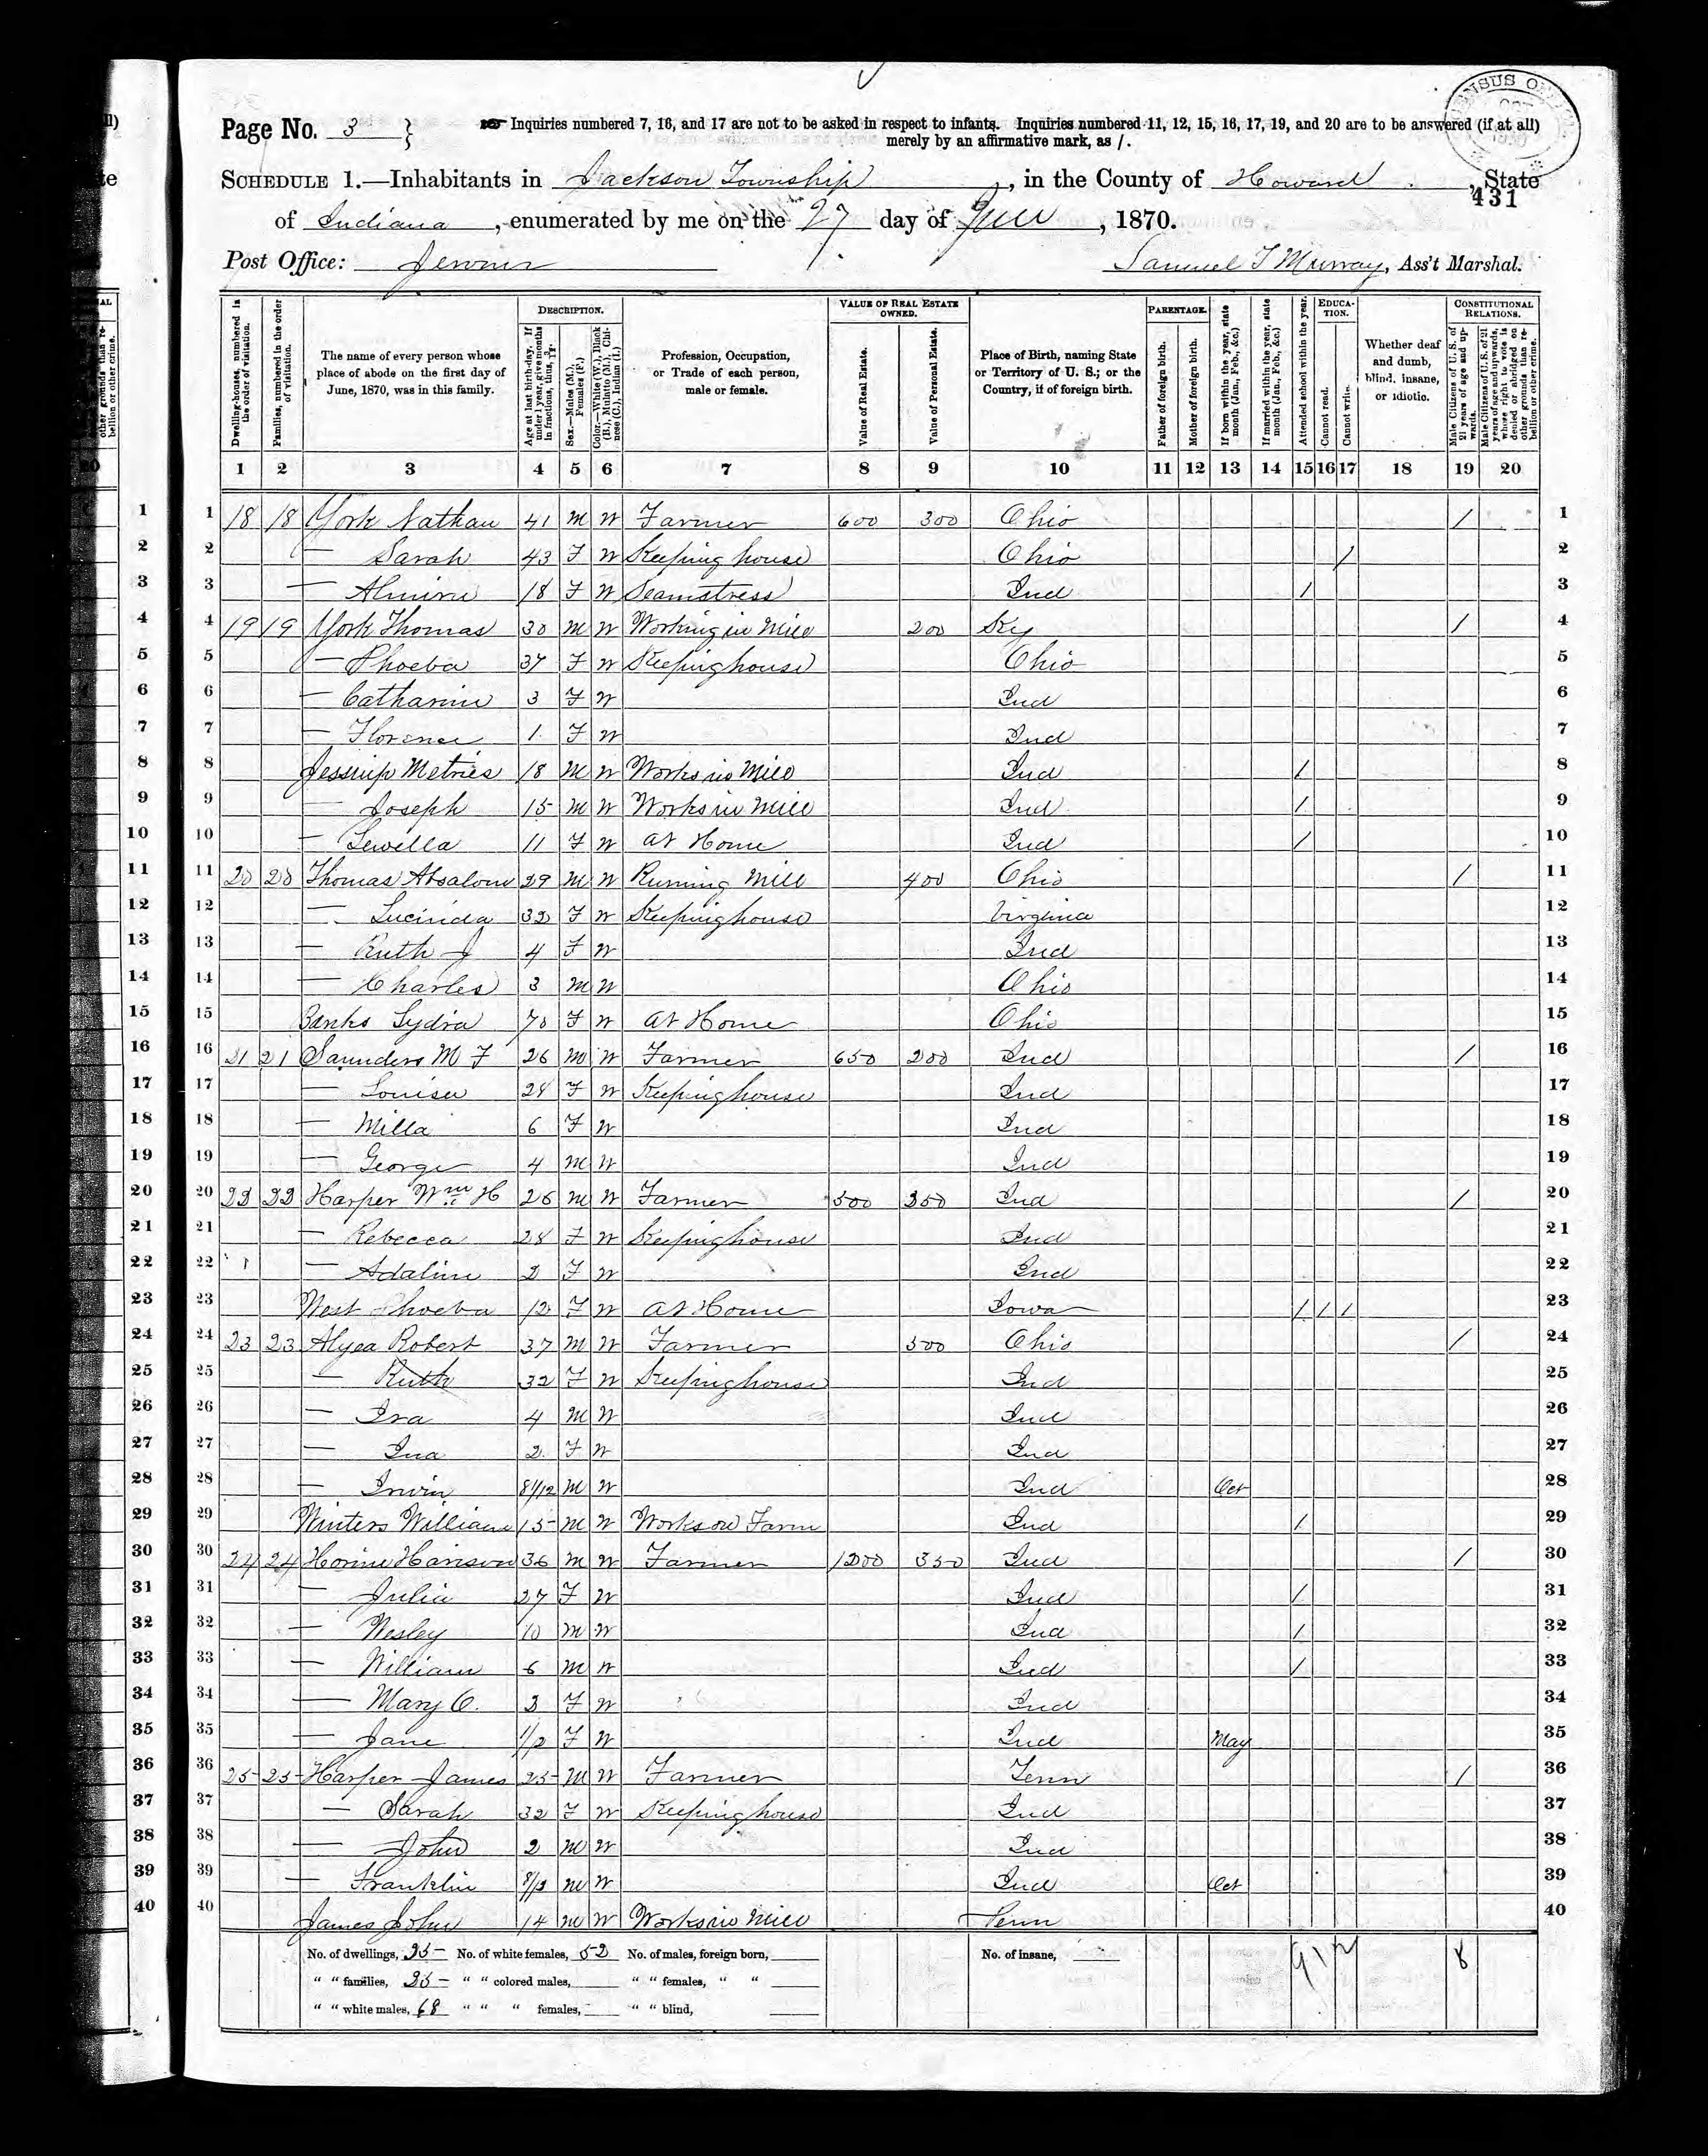 Page No. 3 }
Inquiries numbered 7, 16, and 17 are not to be asked in respect to infants. Inquiries numbered 11, 12, 15, 16, 17, 19, and 20 are to be answered (if at all)
merely by an affirmative mark, as /.
SCHEDULE 1.—Inhabitants in Jackson Township, in the County of Howard, State
431
of Indiana, enumerated by me on the 27 day of June, 1870.
Post Office: Jerome
Samuel T Murray, Ass't Marshal.
Dwelling-houses, numbered in the order of visitation.
Families, numbered in the order of visitation.
The name of every person whose place of abode on the first day of June, 1870, was in this family.
DESCRIPTION.
Age at last birth-day. If under 1 year, give months in fractions, thus, 3/12.
Sex.—Males (M.), Females (F.)
Color.—White (W.), Black (B.), Mulatto (M.), Chinese (C.), Indian (I.)
Profession, Occupation, or Trade of each person, male or female.
VALUE OF REAL ESTATE OWNED.
Value of Real Estate.
Value of Personal Estate.
Place of Birth, naming State or Territory of U. S.; or the Country, if of foreign birth.
PARENTAGE.
Father of foreign birth.
Mother of foreign birth.
If born within the year, state month (Jan., Feb., &c.)
If married within the year, state month (Jan., Feb., &c.)
Attended school within the year.
EDUCATION.
Cannot read.
Cannot write.
Whether deaf and dumb, blind, insane, or idiotic.
CONSTITUTIONAL RELATIONS.
Male Citizens of U. S. of 21 years of age and upwards.
Male Citizens of U. S. of 21 years of age and upwards, whose right to vote is denied or abridged on other grounds than rebellion or other crime.
1 2 3 4 5 6 7 8 9 10 11 12 13 14 15 16 17 18 19 20
1 18 18 York Nathan 41 M W Farmer 600 300 Ohio / 1
2 — Sarah 43 F W Keeping house Ohio / 2
3 — Almira 18 F W Seamstress Ind / 3
4 19 19 York Thomas 30 M W Working in Mill 200 Ky / 4
5 — Phoeba 37 F W Keeping house Ohio 5
6 — Catharine 3 F W Ind 6
7 — Florence 1 F W Ind 7
8 Jessup 18 M W Works in Mill Ind / 8
9 — Joseph 15 M W Works in Mill Ind / 9
10 — Lewella 11 F W At Home Ind / 10
11 20 20 Thomas Absalom 29 M W Running Mill 400 Ohio / 11
12 — Lucinda 32 F W Keeping house Virginia 12
13 — Ruth J 4 F W Ind 13
14 — Charles 3 M W Ohio 14
15 Banks Lydia 70 F W At Home Ohio 15
16 21 21 Saunders M F 26 M W Farmer 650 200 Ind / 16
17 — Louisa 24 F W Keeping house Ind 17
18 — Milla 6 F W Ind 18
19 — George 4 M W Ind 19
20 22 22 Harper Wm H 26 M W Farmer 500 350 Ind / 20
21 — Rebecca 28 F W Keeping house Ind 21
22 — Adaline 2 F W Ind 22
23 West Phoeba 12 F W At Home Iowa / / / 23
24 23 23 Alyea Robert 37 M W Farmer 500 Ohio / 24
25 — Ruth 32 F W Keeping house Ind 25
26 — Ira 4 M W Ind 26
27 — Ina 2 F W Ind 27
28 — Irwin 8/12 M W Ind Oct 28
29 Winters William 15 M W Works on Farm Ind / 29
30 24 24 Horine Harison 36 M W Farmer 1200 350 Ind / 30
31 — Julia 27 F W Ind / 31
32 — Wesley 10 M W Ind / 32
33 — William 6 M W Ind / 33
34 — Mary C. 3 F W Ind 34
35 — Jane 1/12 F W Ind May 35
36 25 25 Harper James 25 M W Farmer Tenn / 36
37 — Sarah 32 F W Keeping house Ind 37
38 — John 2 M W Ind 38
39 — Franklin 8/12 M W Ind Oct 39
40 James John 14 M W Works in Mill 40
No. of dwellings, 25 No. of white females, 52 No. of males, foreign born, No. of insane, 8
" " families, 25 " " colored males, " " females, " "
" " white males, 68 " " " females, " " blind,